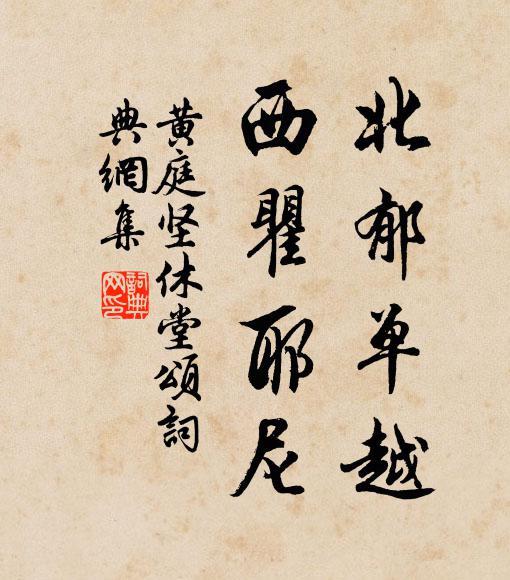 北郁单越
西瞿耶尼
黄庭坚休堂頌詞
典網集
詞典网印